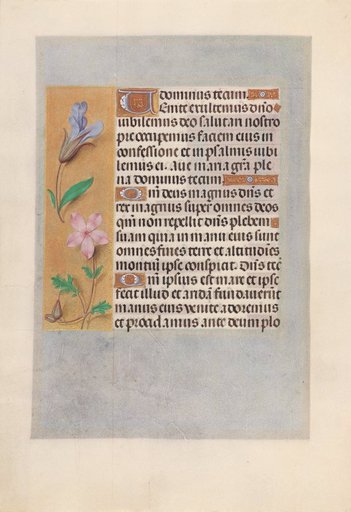 dominus tecum.
Venite exultemus dño
iubilemus deo salutari nostro
preocupemus faciem eius in
confessione et in psalmis iubi
lemus ei. aue maria grã ple
na dominus tecum
Qm̃ deus magnus dñs et
rex magnus super omnes deos
qm̃ non repellit dñs plebem
suam quia in manu eius sunt
omnes fines terre et altitudines
montiũ ipse conspicit. Dñs tecũ
Qm̃ ipsius est mare et ipse
fecit illud et aridã fundauerũt
manus eius venite adoremus
et procidamus ante deum plo